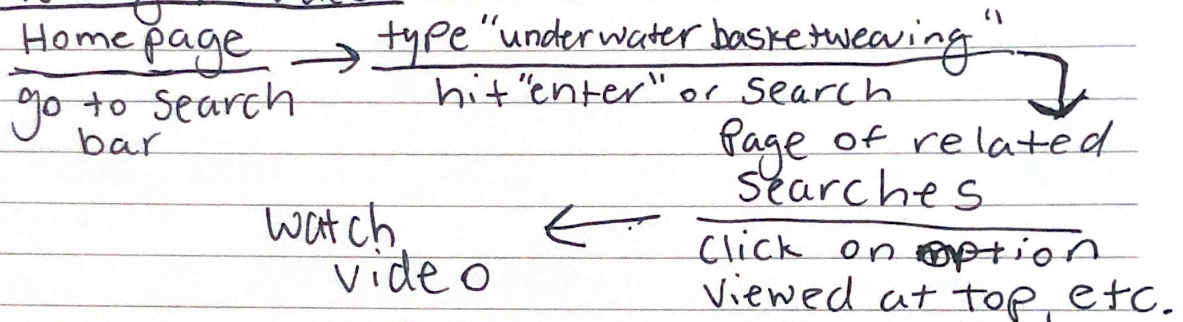 Home page → type "underwater basketweaving"
go to search
bar
hit "enter" or search
Page of related
searches
click on option
viewed at top, etc.
← watch
video